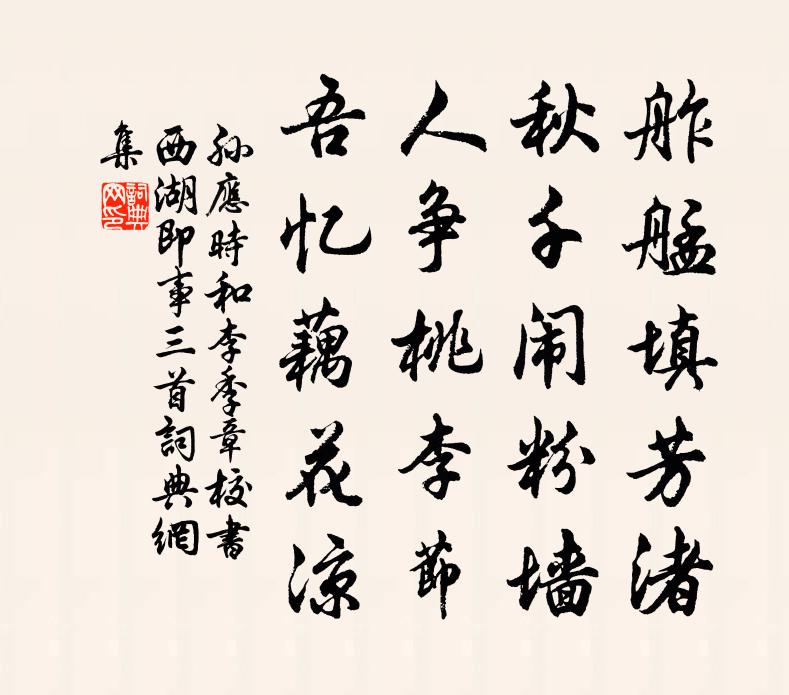 舴艋填芳渚
秋千闹粉墙
人争桃李節
吾忆藕花凉
孙應時和李季章校書
西湖即事三首詞典網
集
詞典
网印